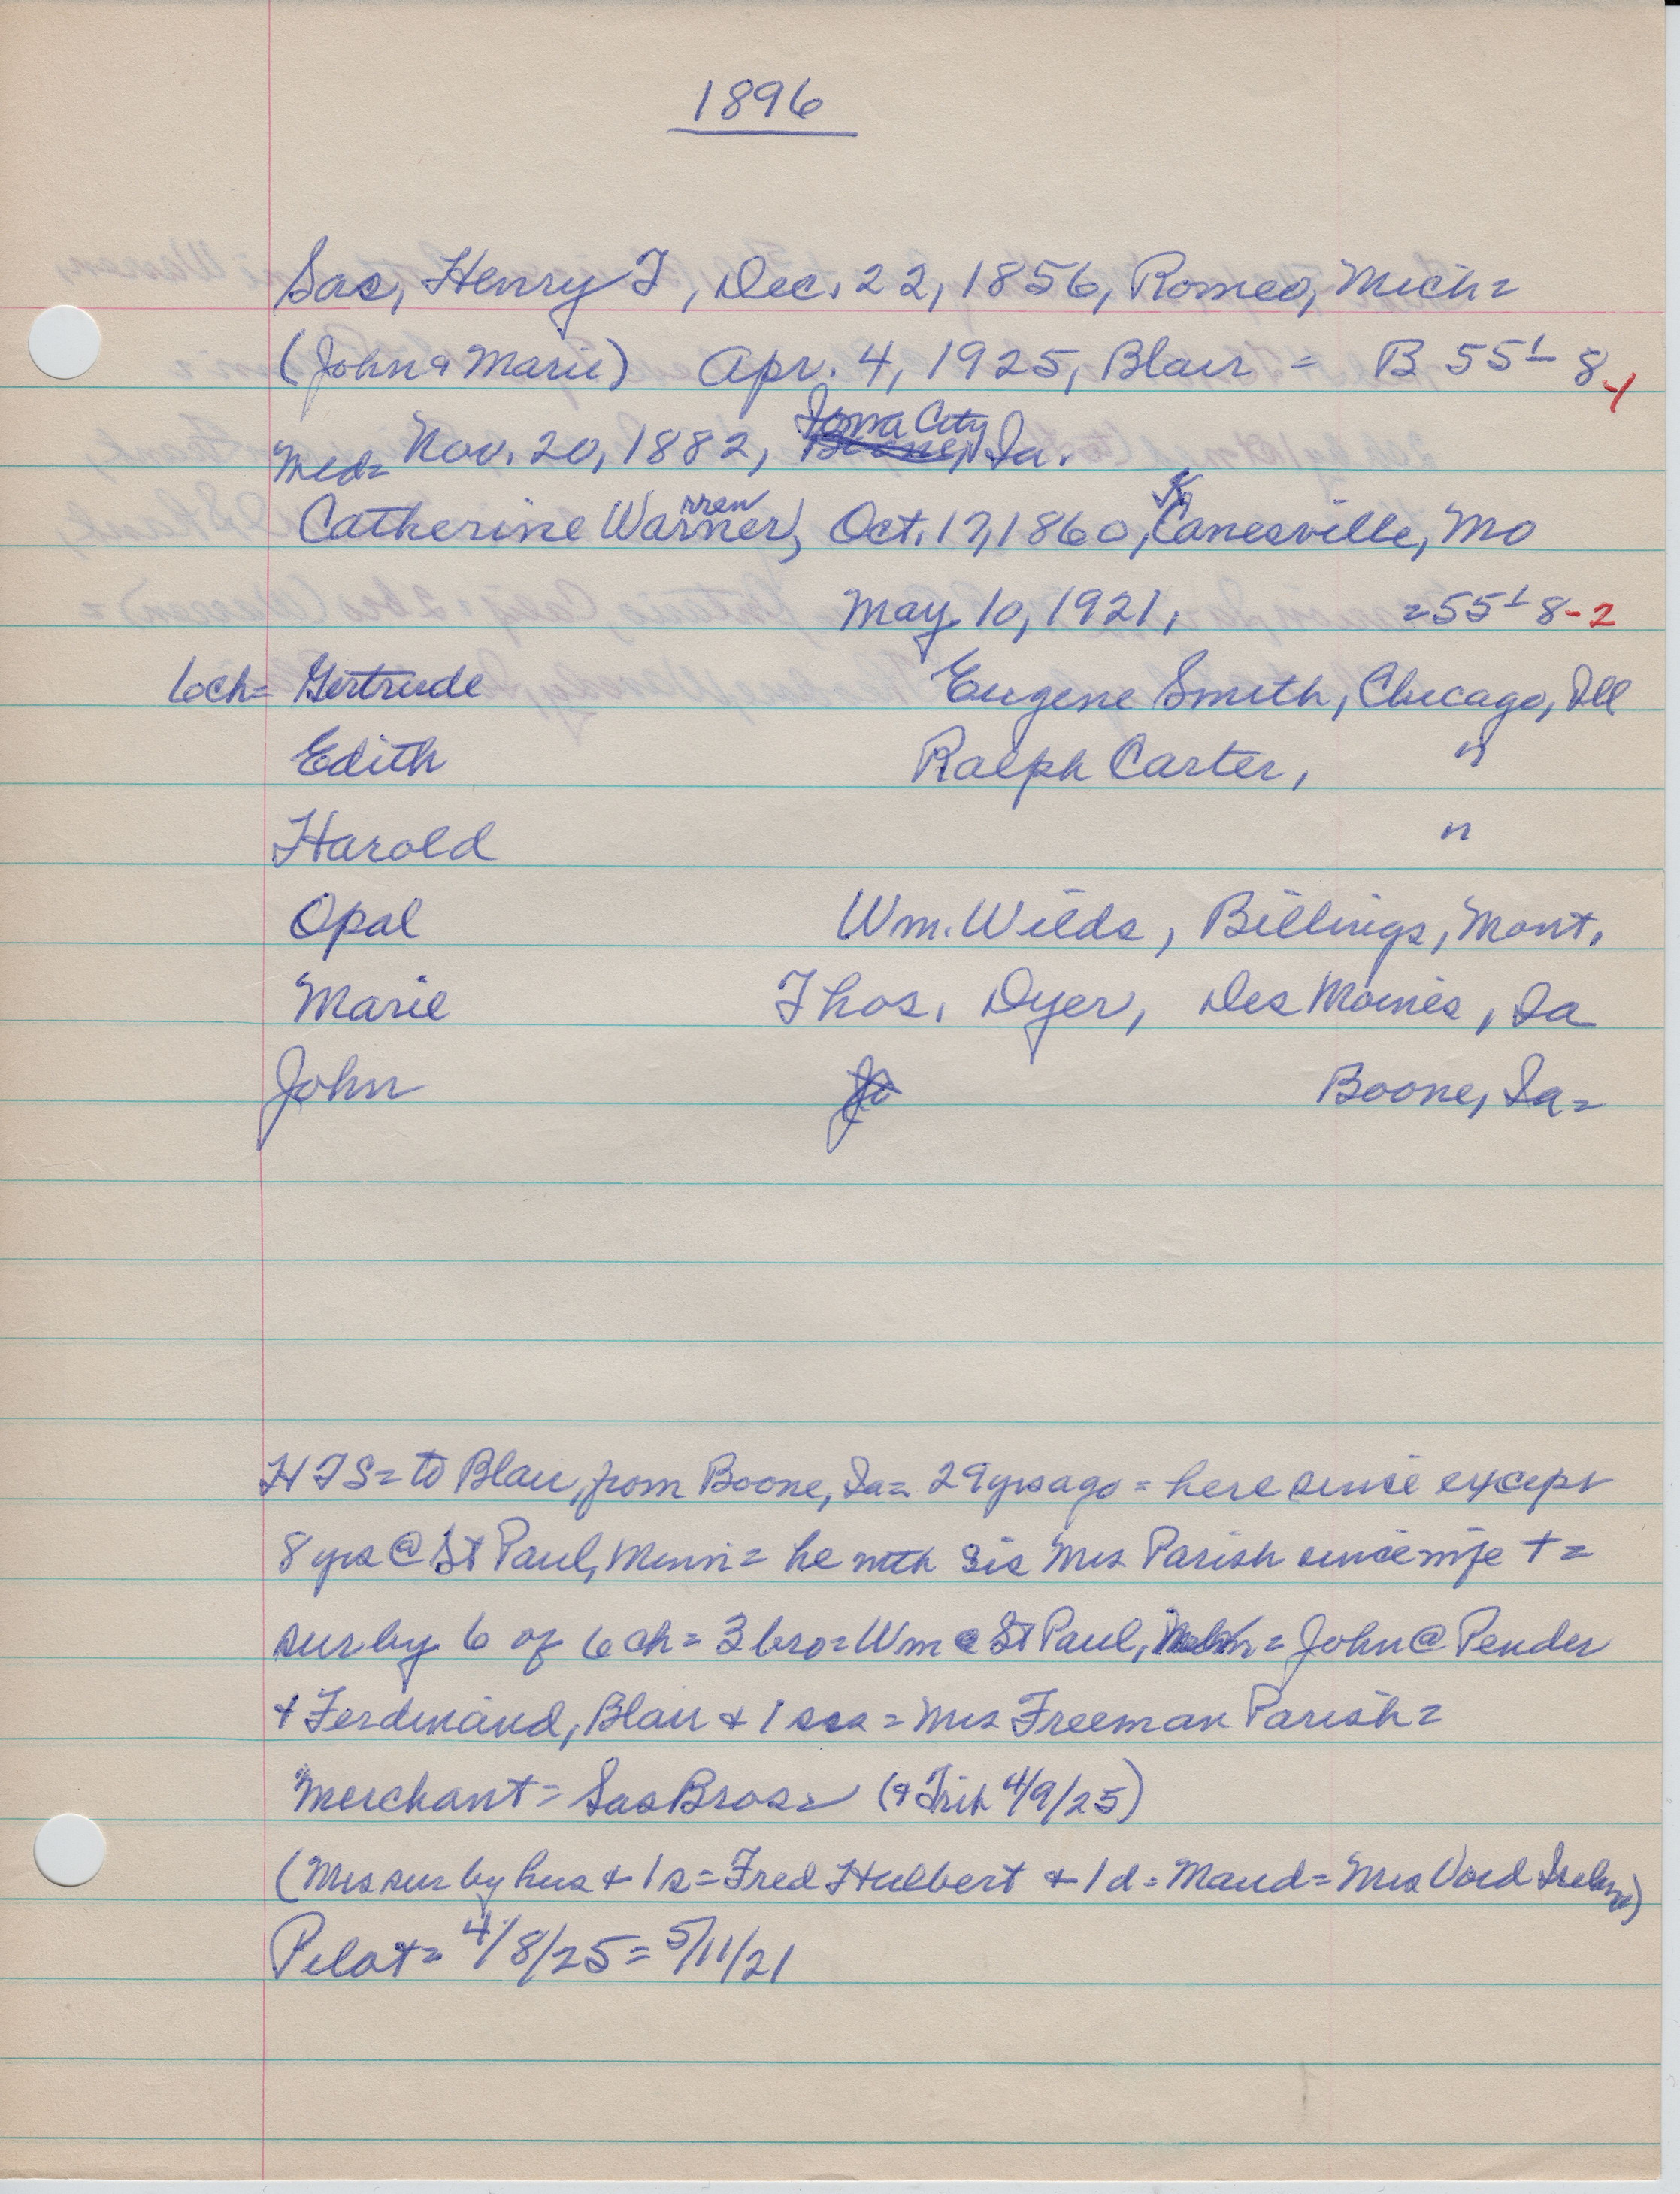 1896
Sas, Henry F, Dec. 22, 1856, Romeo, Mich =
(John & Marie) Apr. 4, 1925, Blair = B 55 L 8-1
Med= Nov. 20, 1882, Iowa City, Ia.
Catherine Warner, rren Oct. 17, 1860, Kanesville, Mo
May 10, 1921, = 55 L 8-2
6ch= Gertrude Eugene Smith, Chicago, Ill
Edith Ralph Carter, "
Harold "
Opal Wm. Wilds, Billings, Mont.
Marie Thos. Dyer, Des Moines, Ia
John Boone, Ia =
HFS = to Blair, from Boone, Ia = 29 yrs ago = here since except
8 yrs @ St Paul, Minn = he with sis Mrs Parish since wife † =
sur by 6 of 6 ch = 3 bro = Wm @ St Paul, = John @ Pender
+ Ferdinand, Blair + 1 sis = Mrs Freeman Parish =
Merchant = Sas Bros = (& Trib 4/9/25)
(Mrs sur by hus + 1 s = Fred Hulbert + 1 d = Maud = Mrs Ireland)
Pilot = 4/8/25 = 5/11/21